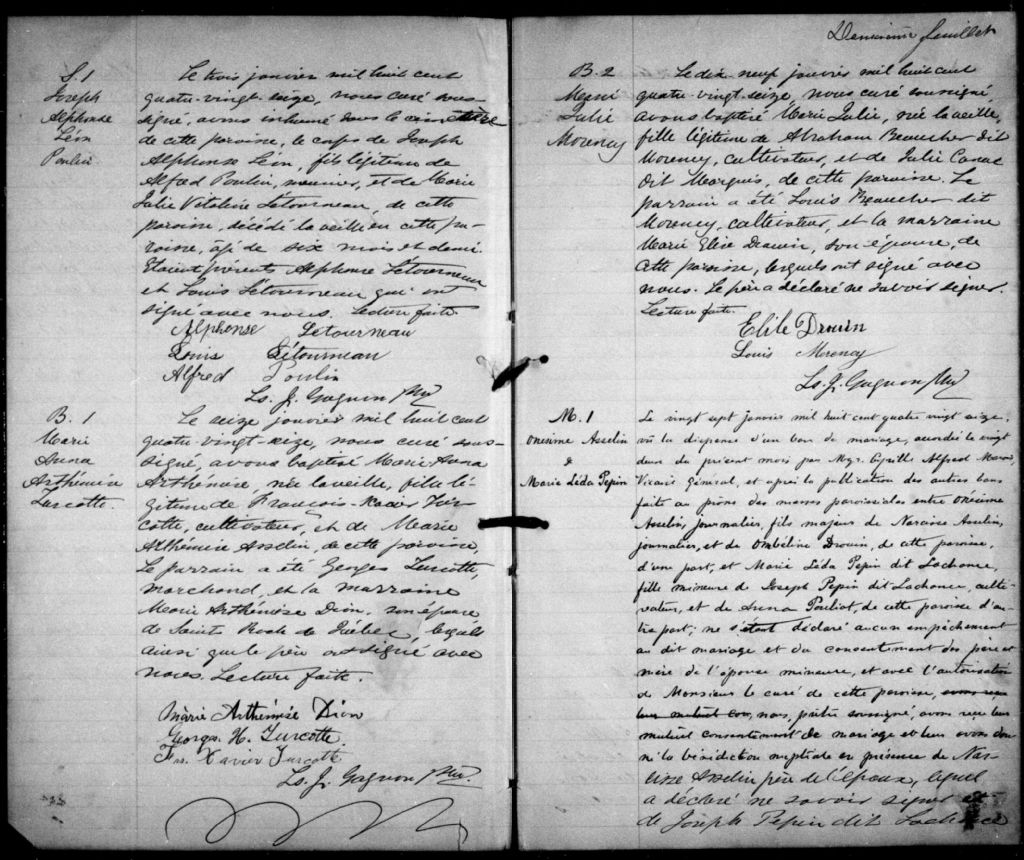 S. 1
Joseph
Alphonse
Léon
Poulin
Le trois janvier mil huit cent
quatre-vingt-seize, nous curé sous-
signé, avons inhumé dans le cimetière
de cette paroisse, le corps de Joseph
Alphonse Léon, fils légitime de
Alfred Poulin, meunier, et de Marie
Julie Vitaline Létourneau, de cette
paroisse, décédé la veille en cette pa-
roisse, âgé de six mois et demi.
Etaient présents Alphonse Létourneau
et Louis Létourneau qui ont
signé avec nous. Lecture faite.
Alphonse Letourneau
Louis Létourneau
Alfred Poulin
Ls. J. Gagnon Ptre
B. 1
Marie
Anna
Arthémise
Turcotte.
Le seize janvier mil huit cent
quatre-vingt-seize, nous curé sous-
signé, avons baptisé Marie-Anna
Arthémise, née la veille, fille lé-
gitime de François-Xavier Tur-
cotte, cultivateur, et de Marie
Arthémise Asselin, de cette paroisse,
Le parrain a été Georges Turcotte,
marchand, et la marraine
Marie Arthémise Dion, son épouse
de Saint Roch de Québec, lesquels
ainsi que le père ont signé avec
nous. Lecture faite.
Marie Arthémise Dion
Georges H. Turcotte
Frs. Xavier Turcotte
Ls. J. Gagnon Ptre.
Deuxième feuillet
B. 2
Marie
Julie
Morency
Le dix-neuf janvier mil huit cent
quatre-vingt-seize, nous curé soussigné
avons baptisé Marie Julie, née la veille,
fille légitime de Abraham Beaucher dit
Morency, cultivateur, et de Julie Canac
dit Marquis, de cette paroisse. Le
parrain a été Louis Beaucher dit
Morency, cultivateur, et la marraine
Marie Elise Drouin, son épouse, de
cette paroisse, lesquels ont signé avec
nous. Le père a déclaré ne savoir signer.
Lecture faite.
Elise Drouin
Louis Morency
Ls. J. Gagnon Ptre
M. 1
Onésime Asselin
&
Marie Léda Pepin
Le vingt sept janvier mil huit cent quatre vingt seize.
vû la dispense d'un ban de mariage, accordée le vingt
deux du présent mois par Mgr. Cyrille Alfred Marois,
Vicaire Général, et après la publication des autres bans
faite au prône des messes paroissiales entre Onésime
Asselin, journalier, fils majeur de Narcisse Asselin,
journalier, et de Ombéline Drouin, de cette paroisse,
d'une part, et Marie Léda Pepin dit Lachance,
fille mineure de Joseph Pepin dit Lachance, culti-
vateur, et de Anna Pouliot, de cette paroisse d'au-
tre part; ne s'étant déclaré aucun empêchement
au dit mariage et du consentement des père et
mère de l'épouse mineure, et avec l'autorisation
de Monsieur le curé de cette paroisse, avons reçu
leur mutuel con, nous, prêtre soussigné, avons reçu leur
mutuel consentement de mariage et leur avons don-
né la bénédiction nuptiale en présence de Nar-
cisse Asselin père de l'époux, lequel
a déclaré ne savoir signer et
de Joseph Pepin dit Lachance